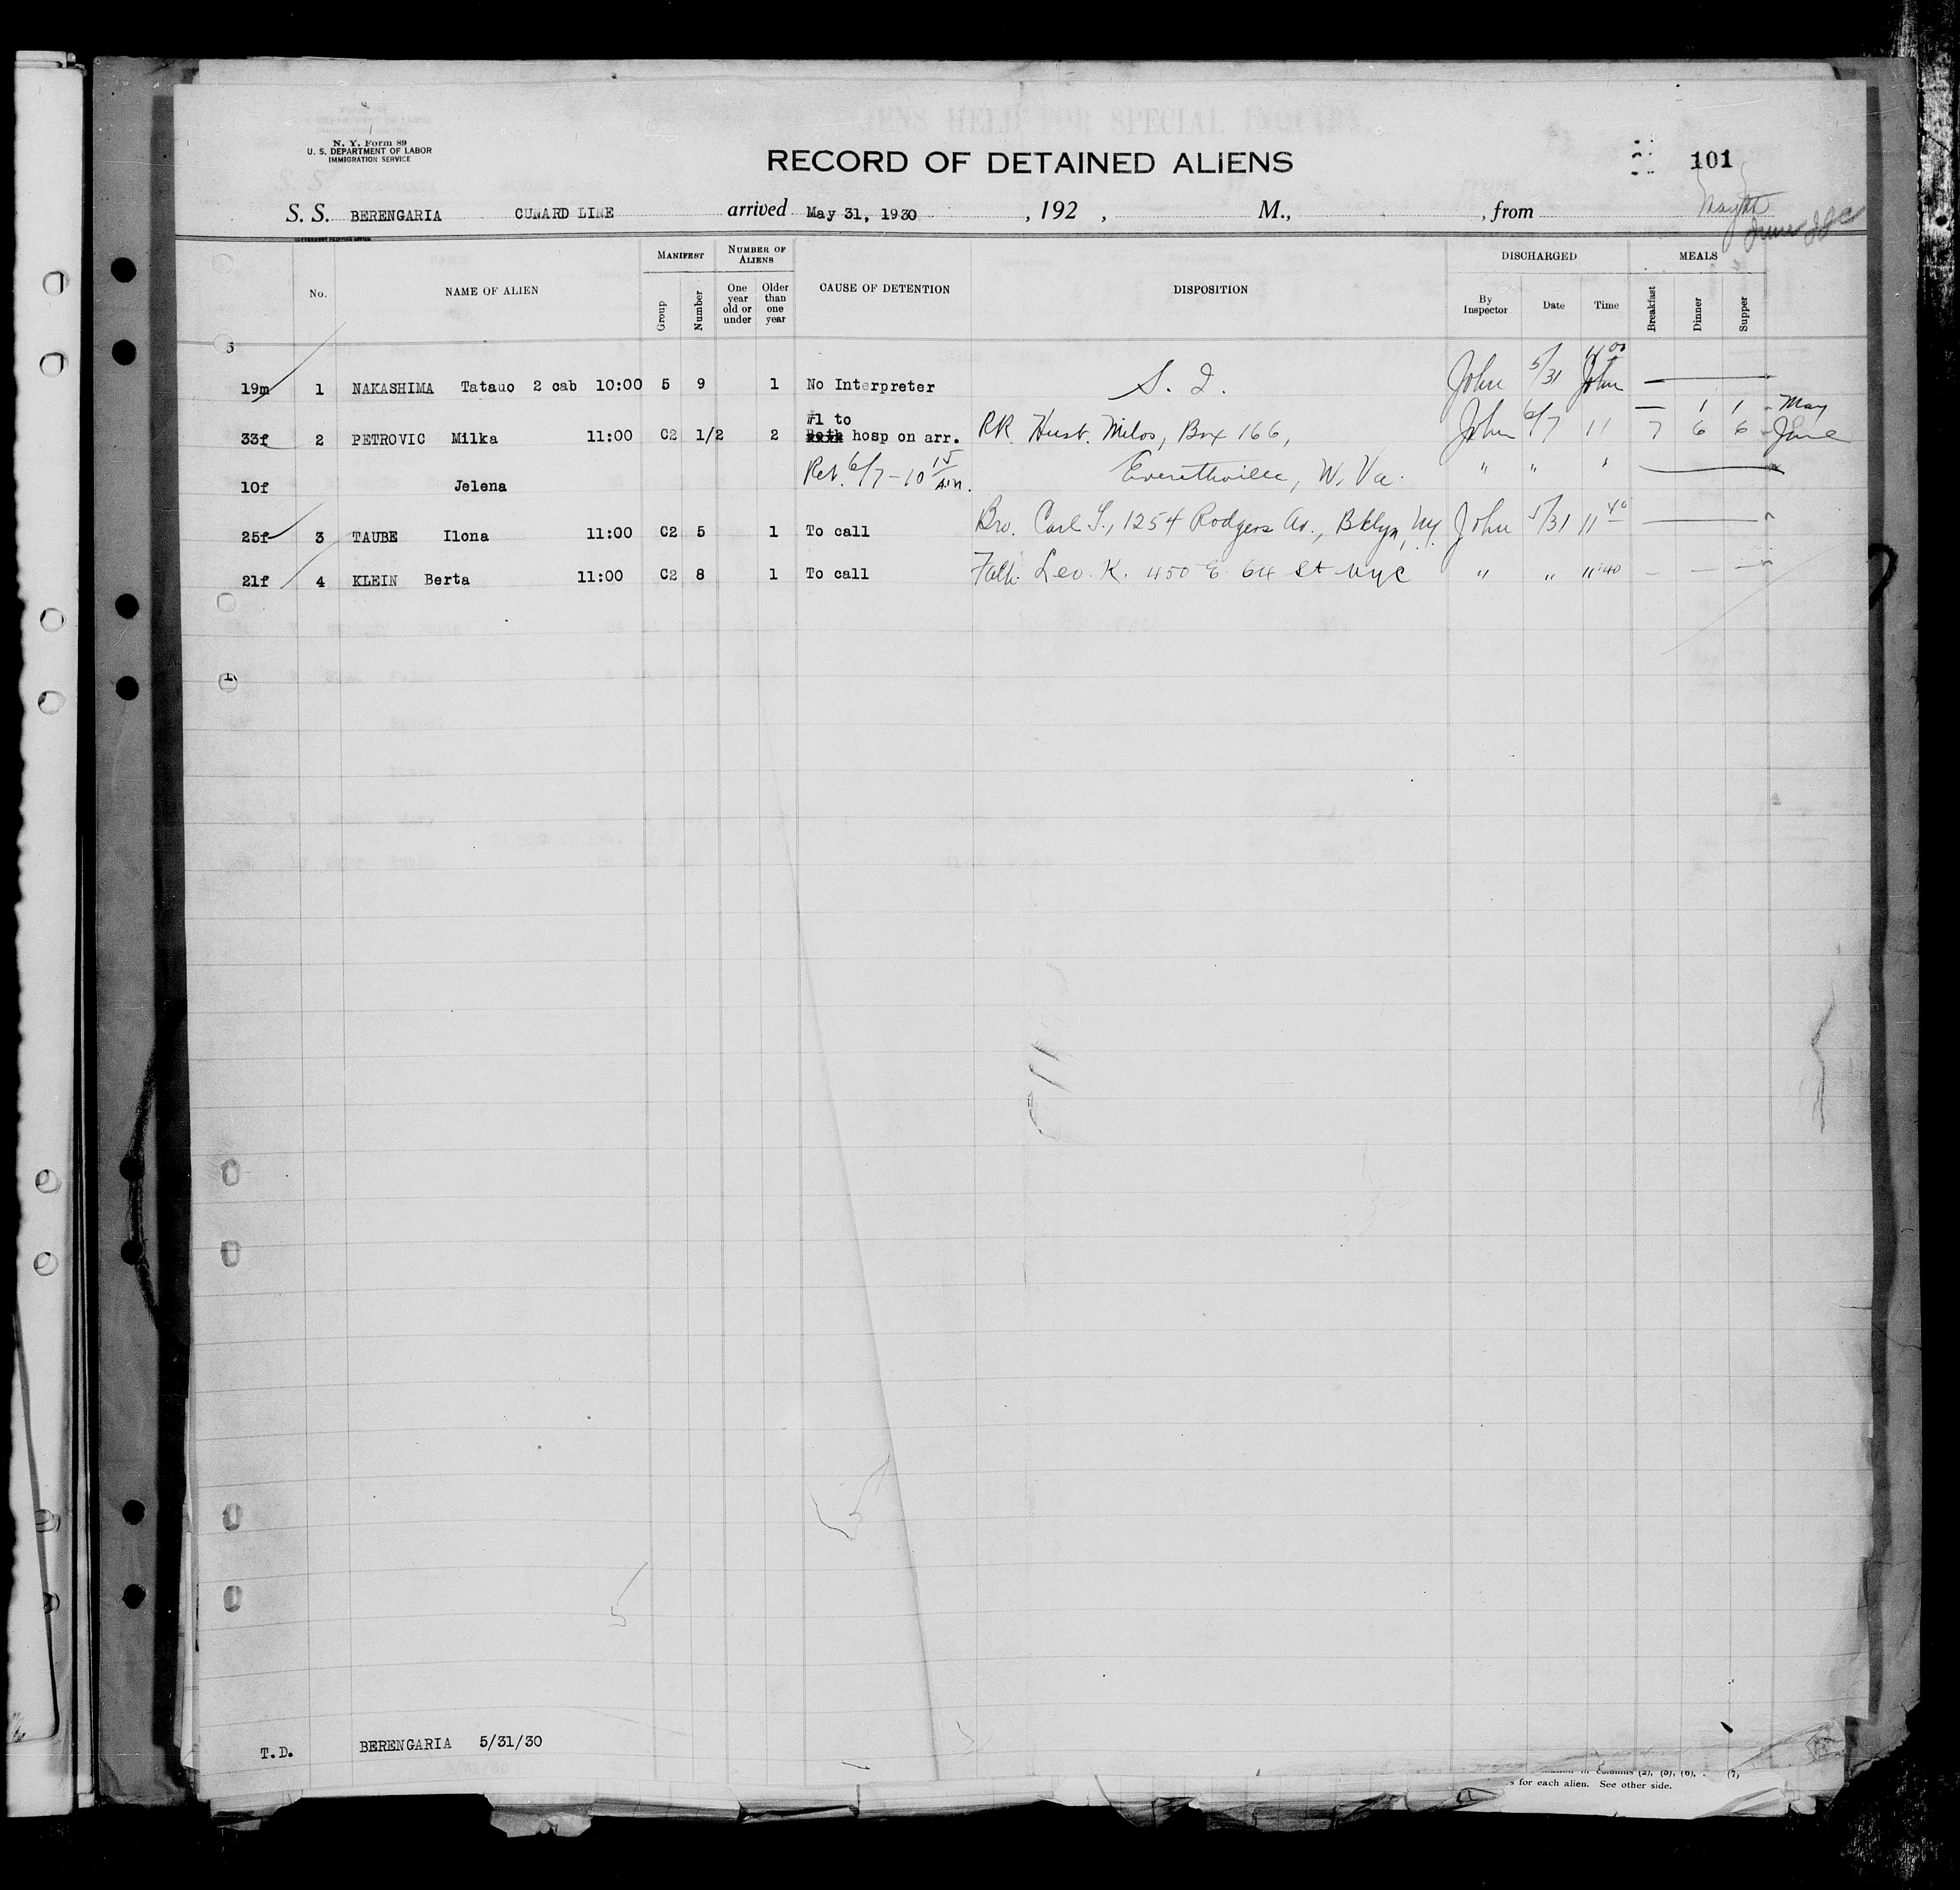 N. Y. Form 89
U. S. DEPARTMENT OF LABOR
IMMIGRATION SERVICE
RECORD OF DETAINED ALIENS
101
S. S. BERENGARIA CUNARD LINE arrived May 31, 1930, 192 , M., , from
GOVERNMENT PRINTING OFFICE
No. NAME OF ALIEN MANIFEST Group Number NUMBER OF ALIENS One year old or under Older than one year CAUSE OF DETENTION DISPOSITION DISCHARGED By Inspector Date Time MEALS Breakfast Dinner Supper
19m 1 NAKASHIMA Tatauo 2 cab 10:00 5 9 1 No Interpreter S. I. John 5/31 11 00
#1 to — 1 1 - May
33f 2 PETROVIC Milka 11:00 C2 1/2 2 Both hosp on arr. RR. Husb. Milos, Box 166, John 6/7 11 7 6 6 - June
10f Jelena Ret. 6/7 - 10 15 A.M. Everettville, W. Va. " " "
25f 3 TAUBE Ilona 11:00 C2 5 1 To call Bro. Carl T., 1254 Rodgers Av., Bklyn, NY John 5/31 11 40
21f 4 KLEIN Berta 11:00 C2 8 1 To call Fath. Leo. K. 450 E. 64 St NYC " " 11 40 — — —
T.D. BERENGARIA 5/31/30
in columns (2), (5), (6), (7,
s for each alien. See other side.